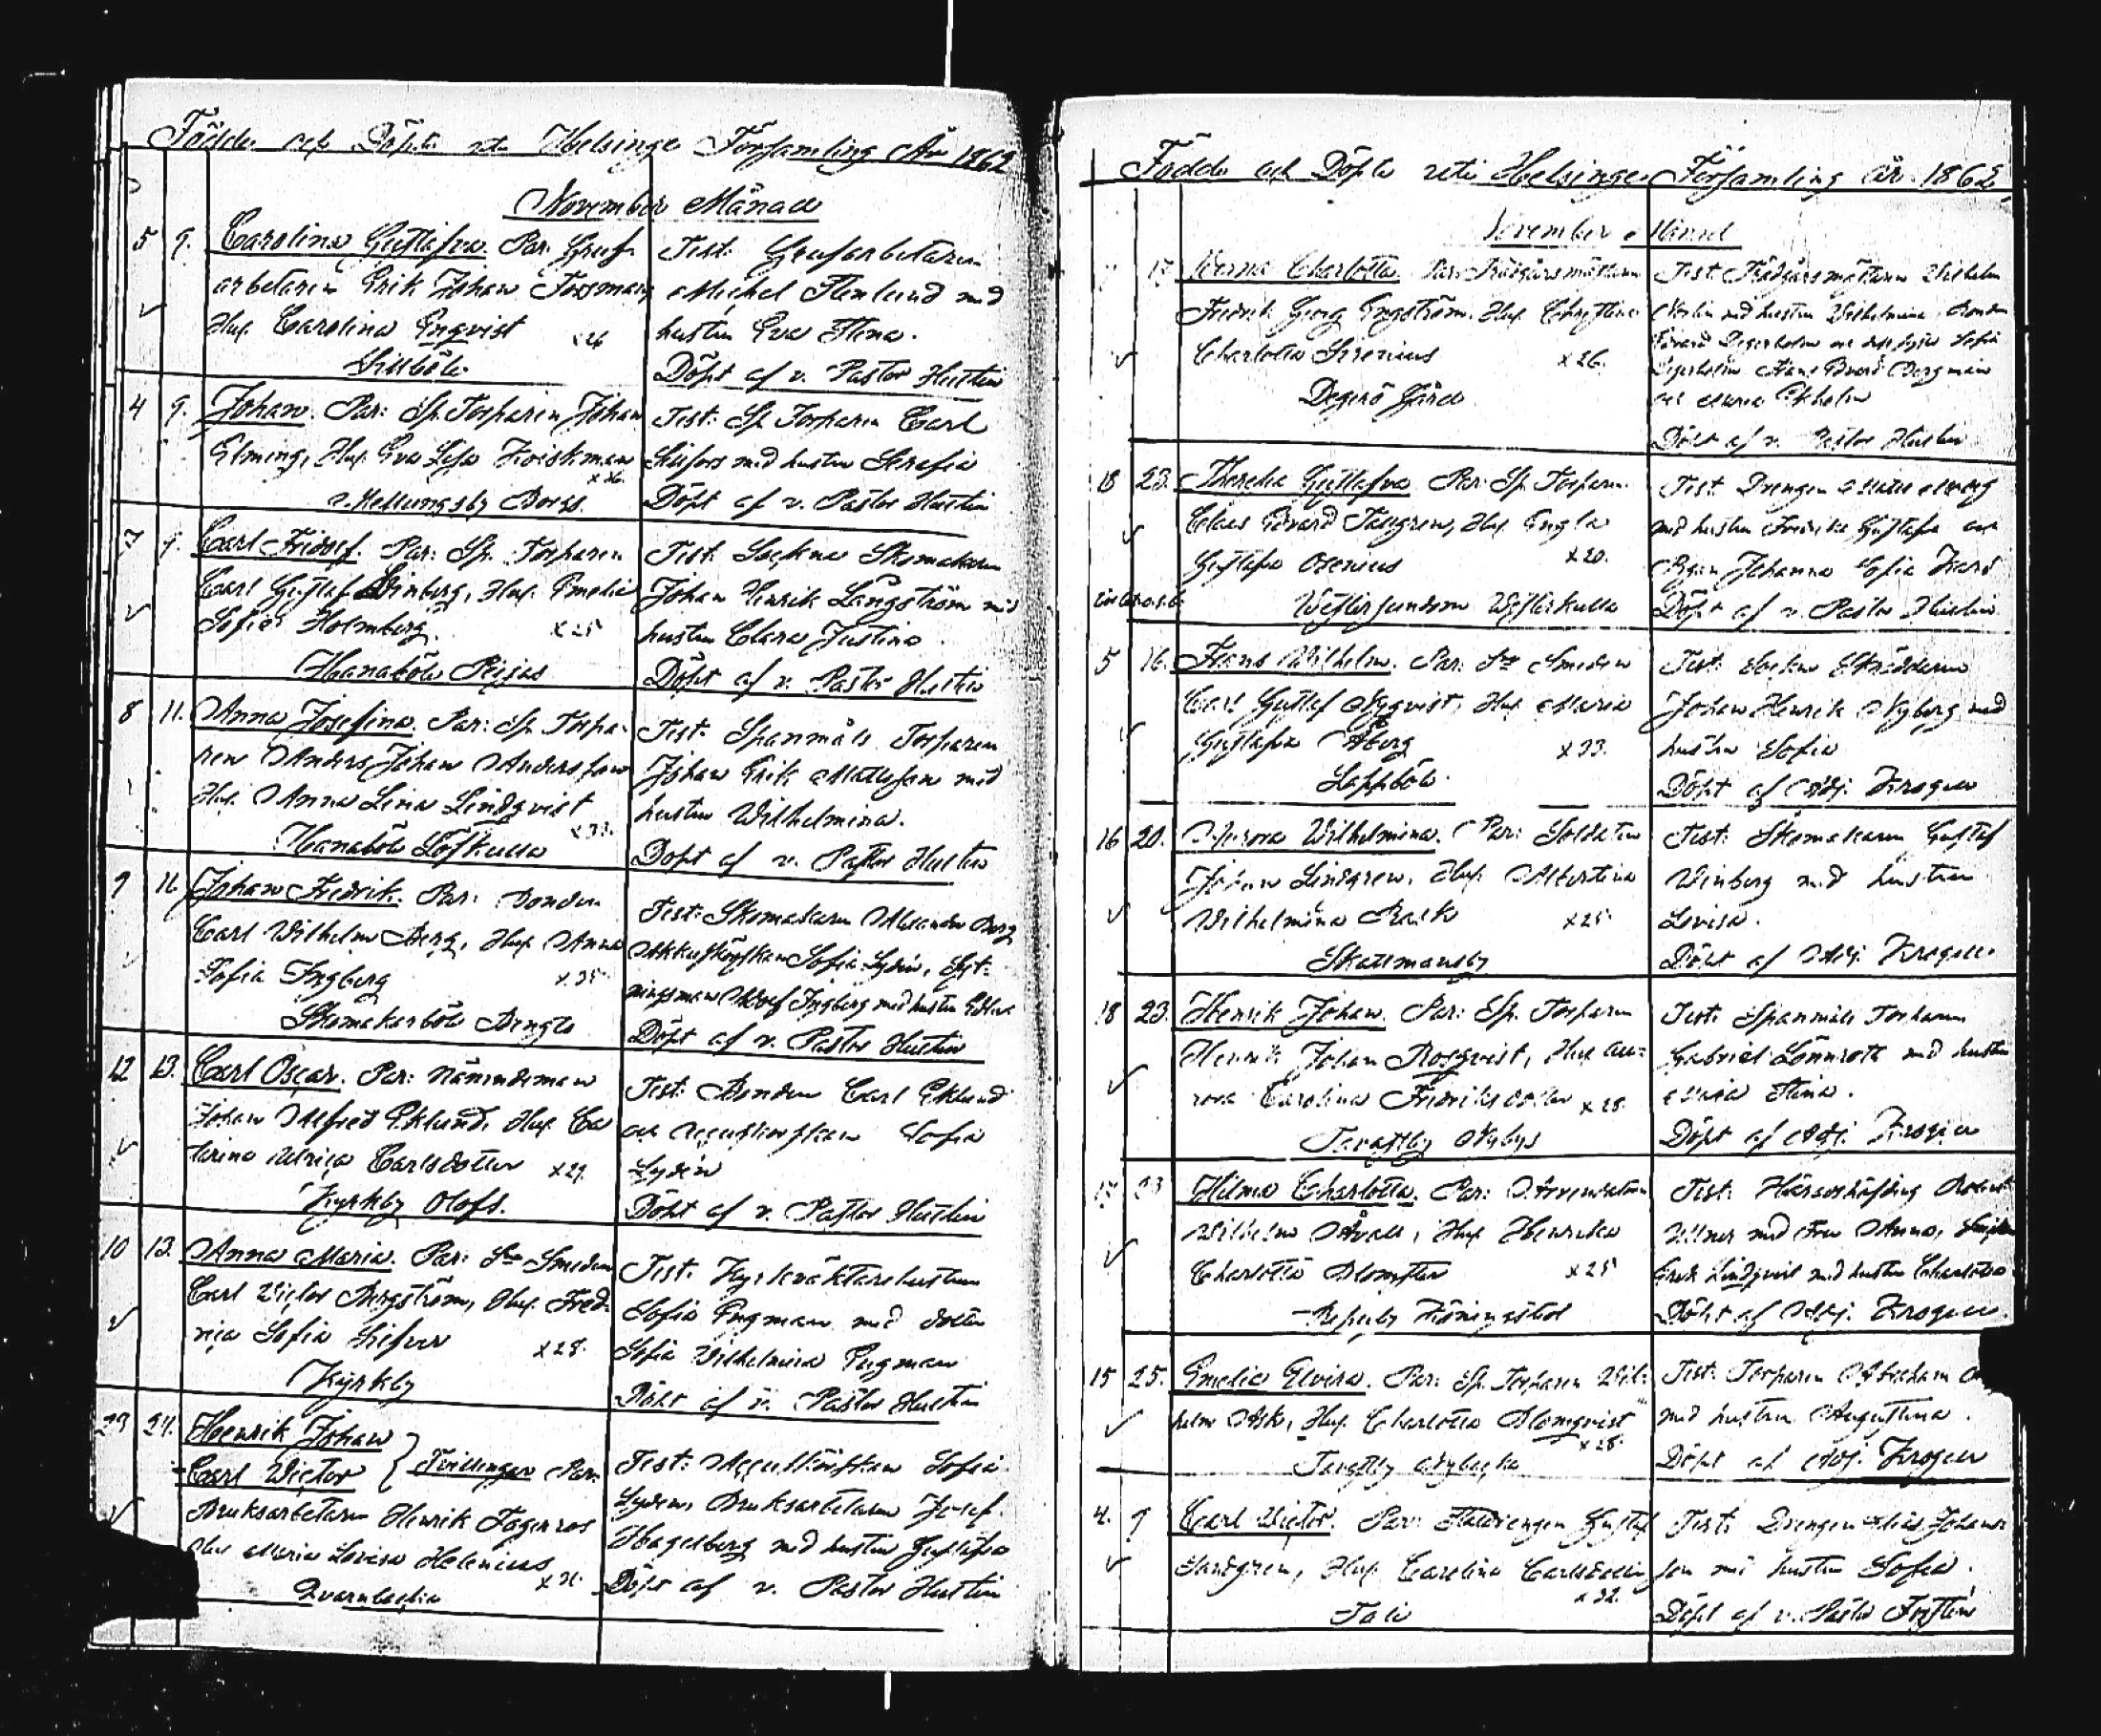 Födde och Döpte uti Helsinge Församling År 1862
November Månad
5 9. Carolina Gustafva. Par: Gruf-
arbetaren Erik Johan Forssman,
Hus. Carolina Enqvist x26
Sillböle
Test: Grufarbetaren
Michel Stenlund med
hustru Eva Stina.
Döpt af v. Pastor Hustin
4 9. Johan. Par: Sp. Torparen Johan
Elming, Hus. Eva Lisa
x36.
Mellungsby Borgs.
Test: Sp. Torparen Carl
med hustru Serafia
Döpt af v. Pastor Hustin
7 9. Carl Fridolf. Par: Sp. Torparen
Carl Gustaf Winberg, Hus. Emelie
Sofia Holmberg. x25
Hanaböle Peijas
Test: Sockne Skomakaren
Johan Henrik Långström med
hustru Clara Justina.
Döpt af v. Pastor Hustin
8 11. Anna Josefina. Par: Sp. Torpa-
ren Anders Johan Andersson
Hus. Anna Lina Lindqvist
x33.
Hanaböle Löfkulla
Test: Spanmåls Torparen
Johan Erik Mattsson med
hustru Wilhelmina.
Döpt af v. Pastor Hustin
9 11. Johan Fredrik. Par: Bonden
Carl Wilhelm Berg, Hus. Anna
Sofia Ingberg x35
Skomakarböle Bengts
Test: Skomakaren Alexander Berg
Sofia Lydén,
med hustru
Döpt af v. Pastor Hustin
12 13. Carl Oscar. Par: Nämndeman
Johan Alfred Eklund, Hus. Ca
tarina Ulrica Carlsdotter x29.
Kyrkby Olofs.
Test: Bonden Carl Eklund
och Accuschörskan Sofia
Lydén
Döpt af v. Pastor Hustin
10 13. Anna Maria. Par: Sne Smeden
Carl Victor Bergström, Hus. Fred-
rica Sofia Silfver x28.
Kyrkby
Test: Kyrkväktarehustrun
Sofia Engman med dotter
Sofia Wilhelmina Engman
Döpt af v. Pastor Hustin
23 24. Henrik Johan
Carl Victor } Tvillingar Par:
Bruksarbetaren Henrik Fagerroos
Hus. Maria Lovisa Helenius
Qvarnbacka
Test: Accuschörskan Sofia
Lydén, Bruksarbetaren Josef
Hagelberg med hustru Gustafva
Döpt af v. Pastor Hustin
Födde och Döpte uti Helsinge Församling år 1862
November Månad
17. Charlotta. Par: Trädgårsmästaren
Fredrik Georg Engström, Hus. Christina
Charlotta Sirenius x26.
Degerö Gård
Test: Trädgårsmästaren Wilhelm
med hustru Wilhelmina, Bonden
Edvard Degerholm och Sofia
Degerholm, Edvard Bergman
och Maria Ekholm
Döpt af v. Pastor Hustin
18 23. Gustafva Par: Sp. Torparen
Claes Edvard Tallgren, Hus. Engla
Gustafva Osenius x20.
Westersundom Westerkulla
Test: Drengen
med hustru Fredrika Gustafva och
Pigan Johanna Sofia
Döpt af v. Pastor Hustin.
5 16. Frans Wilhelm. Par: Sne Smeden
Carl Gustaf Nyqvist, Hus. Maria
Gustafva Åberg x33.
Lappböle.
Test: Sockne Skräddaren
Johan Henrik Nyberg med
hustru Sofia
Döpt af Adj. Krogell
16 20. Aurora Wilhelmina. Par: Soldaten
Johan Lindgren, Hus. Albertina
Wilhelmina Rask x25
Skattmansby
Test: Skomakaren Gustaf
Winberg med hustru
Lovisa.
Döpt af Adj. Krogell
18 23. Henrik Johan. Par: Sp. Torparen
Henrik Johan Rosqvist, Hus. Au-
rora Carolina Fredriksdotter x28.
Tavastby Nybys
Test: Spanmåls Torparen
Gabriel Lönnroth med hustru
Maria Stina.
Döpt af Adj. Krogell
17 23 Hilma Charlotta. Par: Arrendatorn
Wilhelm Åvall, Hus. Henrika
Charlotta Blomster x25
Repesby Köningstedt
Test: Häradshöfding
med Fru Anna,
Erik Lindqvist med hustru Charlotta.
Döpt af Adj. Krogell.
15 25. Emelia Elvira. Par: Sp. Torparen Wil-
helm Ask, Hus. Charlotta Blomqvist
x28.
Tavastby Nybacka
Test: Torparen Abraham
med hustru Augustina.
Döpt af Adj. Krogell
4. 9 Carl Victor. Par: Stalldrengen Gustaf
Sandgren, Hus. Carolina Carlsdotter
x32.
Tali
Test: Drengen Elias Johans
son med hustru Sofia.
Döpt af v. Pastor Forstén